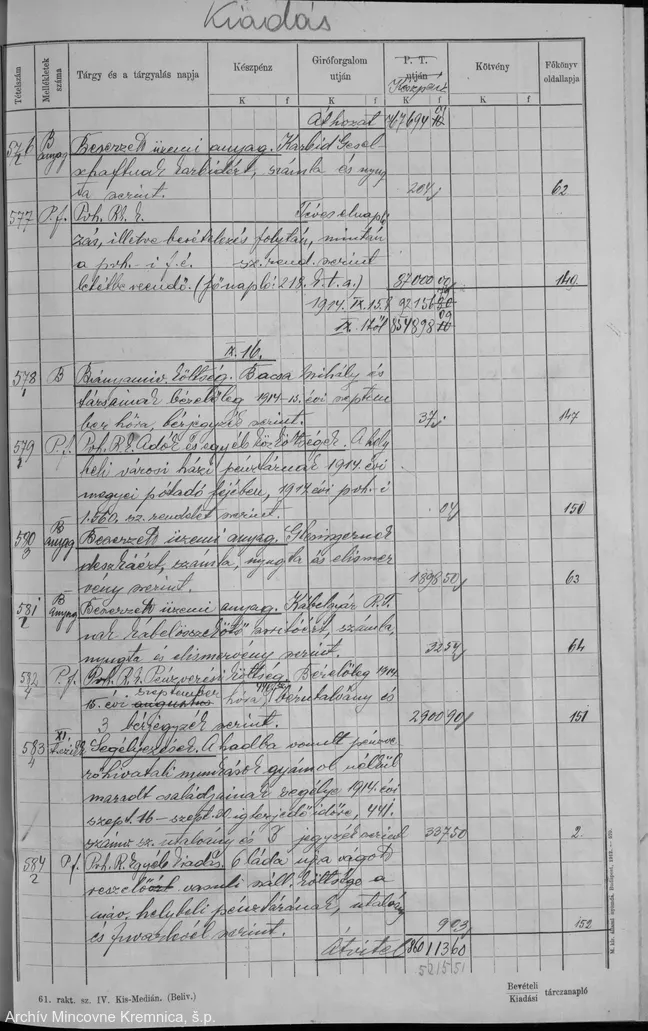 Kiadás
Tételszám
Mellékletek száma
Tárgy és a tárgyalás napja
Készpénz
Giróforgalom útján
P. T. útján
Készpénz
Kötvény
Főkönyv oldallapja
K f K f K f K f
Áthozat 767694
576/2 B anyag Beszerzett üzemi anyag. Karbid Gesel
schaftnak karbidért, számla és nyug
ta szerint. 204 62
577 P.f. Pvh. R.t. E. Téves elnapló
zás, illetve bevételezés folytán, miután
a pvh. i. f. é. sz. rend. szerint
letétbe veendő. (főnapló: 218. k. t. a.) 87000 149.
1914. IX. 15. 92156
IX. 1től 854898
IX. 16.
578/1 B Bányaműv. költség. Bacsa Mihály és
társainak bérelőleg 1914-15. évi szeptem
ber hóra, bérjegyzék szerint. 37 147
579/1 P.f. Pvh. R.t. Adók és egyéb közköltségek. A hely
beli városi házi pénztárnak 1914. évi
megyei pótadó fejében, 1914. évi pvh. i
1.560. sz. rendelet szerint. 04 150
590/3 B anyag Beszerzett üzemi anyag.
deszkáért, számla, nyugta és elismer
vény szerint. 1898 50 63
581/2 B anyag Beszerzett üzemi anyag. Kábelgyár R.T.
nak kábelösszekötő szorítóért, számla,
nyugta és elismervény szerint. 32 54 64
582/4 P.f. Pvh. R.t. Pénzverési költség. Bérelőleg 1914.
szeptember
15. évi augustus hóra, bérutalvány és
3 bérjegyzék szerint. 2900 90 151
583/4 XI. Segélyezések. A hadba vonult pénzve
rőhivatali munkások gyámol nélkül
maradt családjainak segélye 1914. évi
szept. 16 - szept. ig terjedő időre, 441.
számv. sz. utalvány és 3 jegyzék szerint 337 50 2.
584/2 P.f. Pvh. R. Egyéb kiadás. 6 láda újra vágott
reszelő vasúti száll. költsége a
máv. helybeli pénztárának, utalvány
és fuvarlevél szerint. 9 03 152
Átvitel 860113 60
5215 51
61. rakt. sz. IV. Kis-Medián. (Beliv.)
Bevételi
Kiadási tárczanapló
M. kir. állami nyomda. Budapest, 1912.
Archív Mincovne Kremnica, š.p.